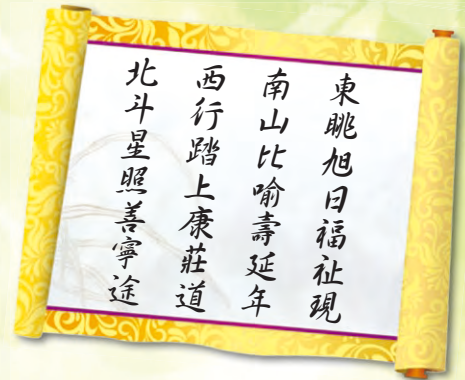 東眺旭日福祉現
南山比喻壽延年
西行踏上康莊道
北斗星照善寧途